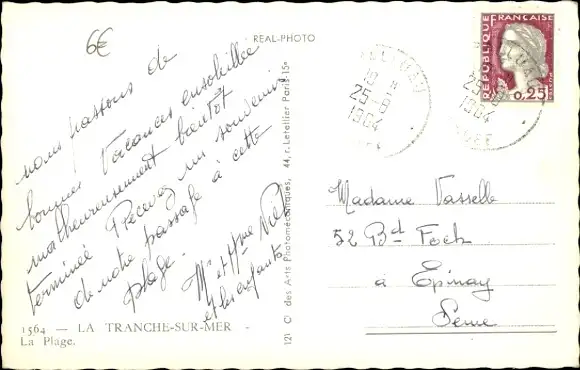 6€
REAL-PHOTO
nous passons de
bonnes Vacances ensoleillées
malheureusement bientôt
terminé Recevez un souvenir
de notre passage à cette
plage.
M et Mme
et les enfants
1564 — LA TRANCHE-SUR-MER -
La Plage.
121 Cie des Arts Photomécaniques, 44, r. Letellier Paris-15e
18 H
25-8
1964
25-8
1964
REPUBLIQUE FRANÇAISE
0,25
Madame Vasselle
52 Bd Foch
à Epinay
Seine